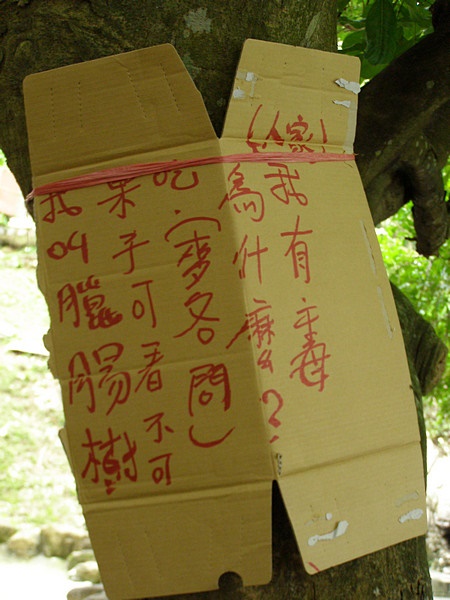 我叫臘腸樹
果子可看不可
吃.(麥各問)
為什麼?
(人家)我有毒